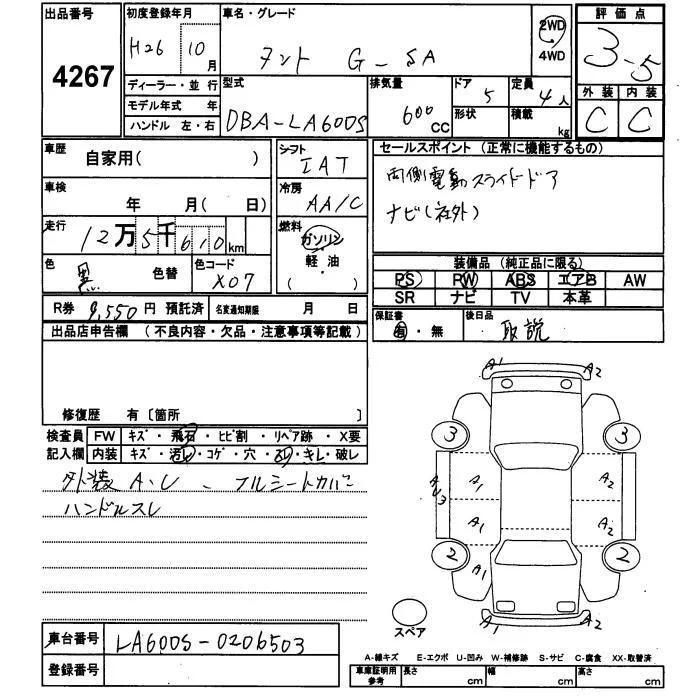 出品番号 初度登録年月 車名・グレード 評価点
4267 H26 10月 タント G-SA 2WD 4WD 3.5
ディーラー・並行 型式 排気量 ドア 定員 外装 内装
モデル年式 年 DBA-LA600S 600CC 5 4人 C C
ハンドル 左・右 形状 積載 kg
車歴 自家用( ) シフト IAT セールスポイント(正常に機能するもの)
車検 年 月( 日) 冷房 AA/C 両側電動スライドドア
走行 12万5千610km 燃料 ガソリン ナビ(社外)
軽・油
色 黒 色替 色コード X07 ( ) 装備品(純正品に限る)
PS PW ABS エアB AW
R券 9,550円 預託済 名変通知期限 月 日 SR ナビ TV 本革
出品店申告欄(不良内容・欠品・注意事項等記載) 保証書 有・無 後日品 取説
修復歴 有〔箇所 〕
検査員 FW キズ・飛石・ヒビ割・リペア跡・X要
記入欄 内装 キズ・汚レ・コゲ・穴・スレ・キレ・破レ
外装A・U - フルシートカバー
ハンドルスレ
A1 A2
3 3
A1 A2
AU3
A1 A2
2 2
A1
A2 A2
スペア
車台番号 LA600S-0206503
登録番号
A-線キズ E-エクボ U-凹み W-補修跡 S-サビ C-腐食 XX-取替済
車庫証明用参考 長さ cm 幅 cm 高さ cm